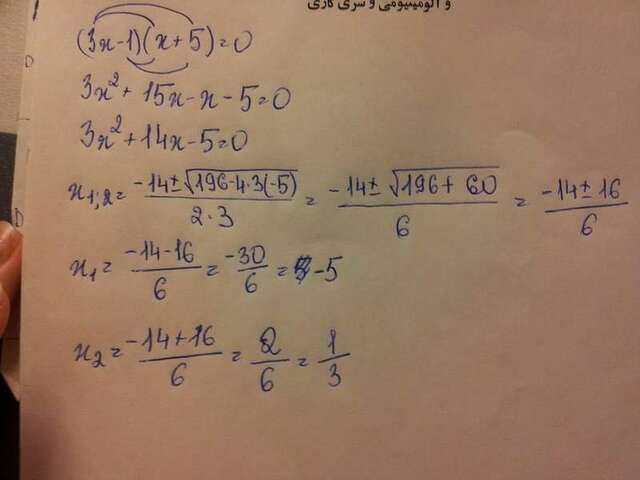 و آلومینیومی و سری کاری
(3x-1)(x+5)=0
3x²+15x-x-5=0
3x²+14x-5=0
x₁;₂= (-14±√(196-4·3(-5)))/(2·3) = (-14±√(196+60))/6 = (-14±16)/6
x₁= (-14-16)/6 = (-30)/6 = -5
x₂= (-14+16)/6 = 2/6 = 1/3